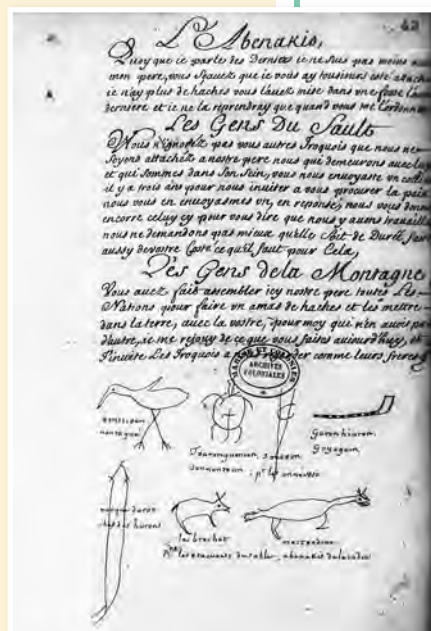 42
L'Abenakis,
Quoy que ie parle des Derniers ie ne suis pas moins
mon pere, vous sçauez que ie vous ay tousiours esté attaché
ie n'ay plus de haches vous l'auez mise dans vne fosse l'année
derniere et ie ne la reprendray que quand vous me l'ordonnerez
Les Gens Du Sault
Vous n'ignorez pas vous autres Iroquois que nous ne
soyons attachez a nostre pere nous qui demeurons auec luy
et qui sommes dans son sein, vous nous enuoyastes vn collier
il y a trois ans pour nous inuiter a vous procurer la paix
nous vous en enuoyasmes vn, en reponse, nous vous donnons
encorre celuy cy pour vous dire que nous y auons trauaillé
nous ne demandons pas mieux qu'elle soit de Durée, faites
aussy de vostre Costé ce qu'il faut pour Cela,
Les Gens de la Montagne
Vous auez fait assembler icy nostre pere toutes Les
Nations pour faire vn amas de haches et les mettre
dans la terre, auec la vostre, pour moy qui n'en auois pas
d'autre, ie me rejouy de ce que vous faites aujourd'huy, et
J'inuite Les Iroquois a nous regarder comme leurs freres
MARINE ET COLONIES
ARCHIVES COLONIALES